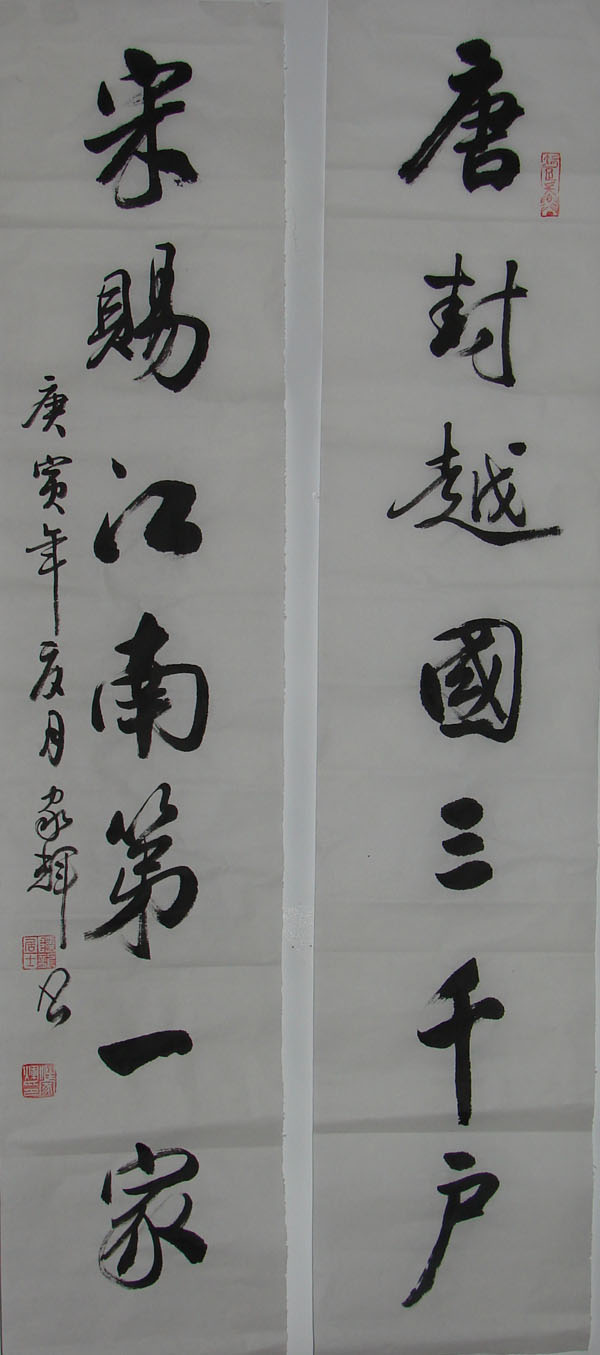 唐封越國三千户
宋賜江南第一家
庚寅年夏月家輝书